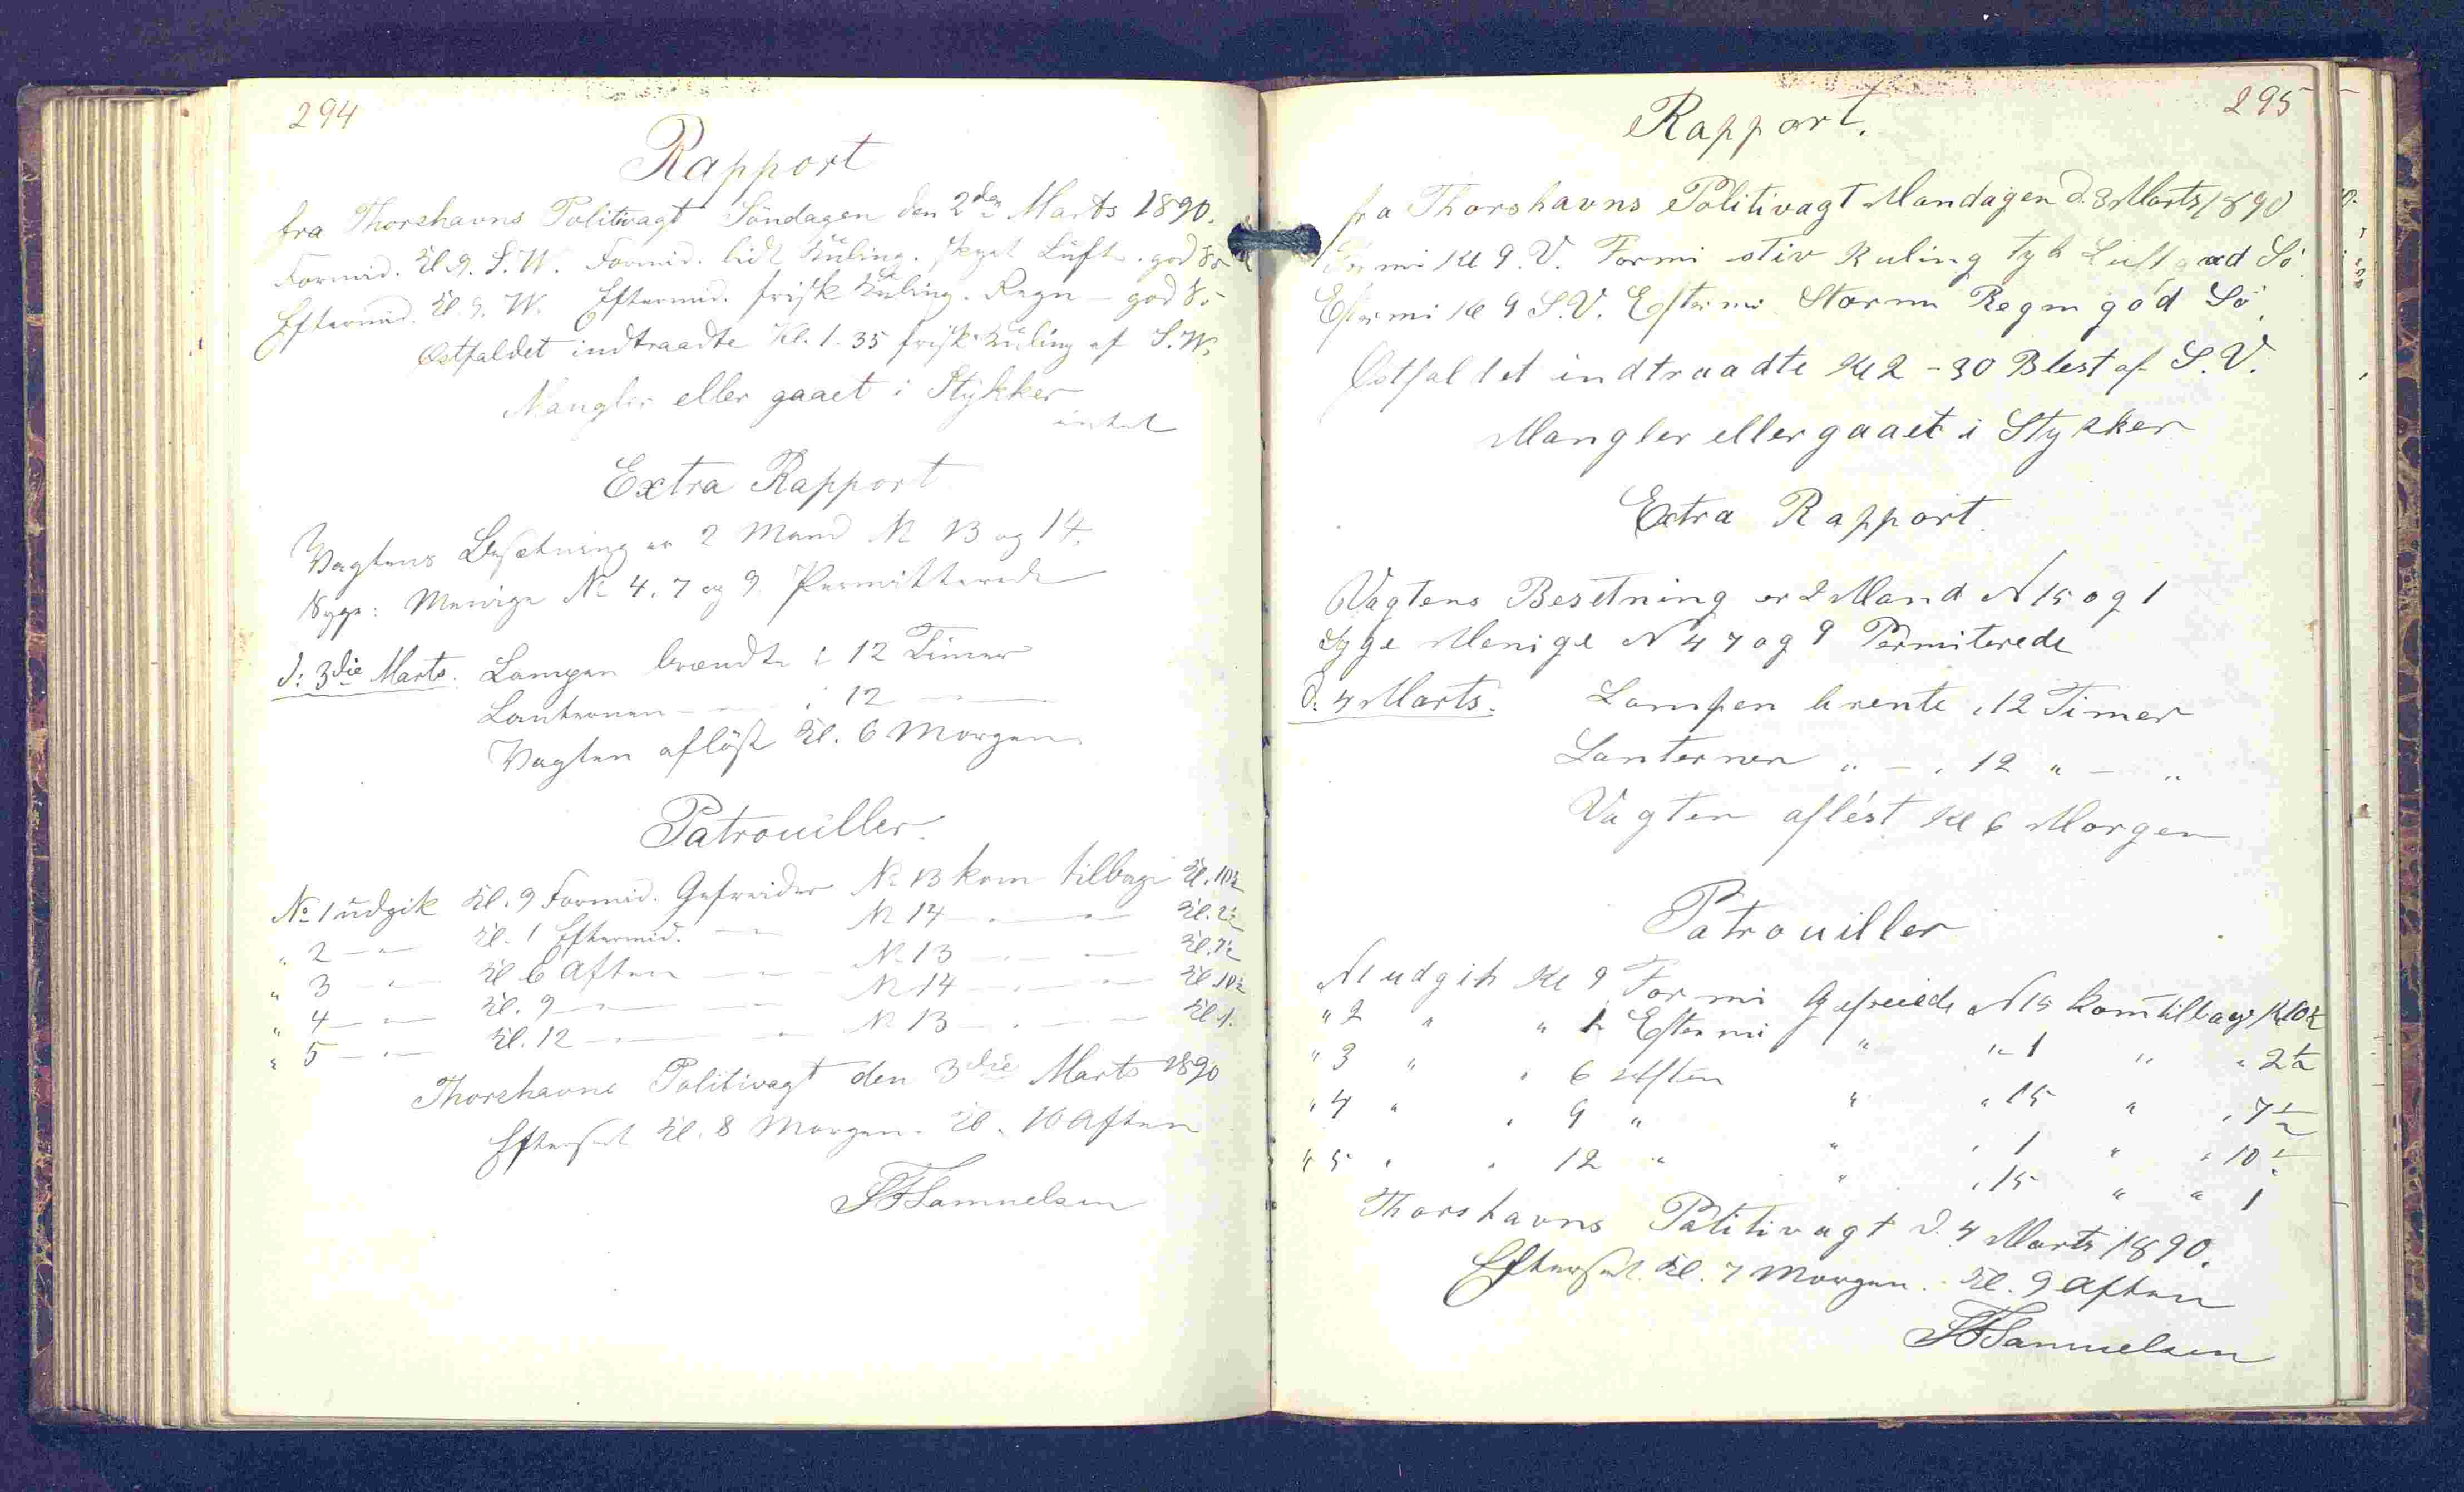 294
Rapport
fra Thorshavns Politivagt Söndagen den 2den Marts 1890.
Formid. Kl. 9. S.W. Formid. lidt Kuling. skyet Luft. god Sö
Eftermid. Kl. 9. W. Eftermid. frisk Kuling. Regn - god Sö
Østfaldet indtraadte Kl. 1-35 frisk Kuling af S.W.
Mangler eller gaaet i Stykker
intet
Extra Rapport
Vagtens Besetning er 2 Mand № 13 og 14.
Syge: Menige № 4. 7 og 9. Permitterede
d: 3die Marts. Lampen brændte i 12 Timer
Lanternen - " - i 12 - " -
Vagten aflöst Kl. 6 Morgen
Patrouiller.
№ 1 udgik Kl. 9 Formid. Gefreider № 13 kom tilbage Kl. 10½
" 2 - " - Kl. 1 Eftermid. - " - № 14 - " - " - Kl. 2½
" 3 - " - Kl 6 Aften - " - № 13 - " - " - Kl. 7½
" 4 - " - Kl. 9 - " - " - № 14 - " - " - Kl 10½
" 5 - " - Kl. 12 - " - " - № 13 - " - " - Kl 1.
Thorshavns Politivagt den 3die Marts 1890
Efterset Kl. 8 Morgen. Kl. 10 Aften
Samuelsen
295
Rapport.
fra Thorshavns Politivagt Mandagen d. 3 Marts 1890
Formi Kl 9. V. Formi stiv Kuling tyk Luft god Sö
Eftermi Kl 9 S.V. Eftermi Storm Regn god Sö.
Østfaldet indtraadte Kl 2-30 Blest af S.V.
Mangler eller gaaet i Stykker
Extra Rapport.
Vagtens Besetning er 2 Mand N 15 og 1
Syge Menige N 4 7 og 9 Permiterede
d. 4 Marts. Lampen brente i 12 Timer
Lanternen " - i 12 " - "
Vagten aflöst Kl 6 Morgen
Patrouiller
N 1 udgik Kl 9 Formi Gefreiede N 15 kom tilbage Kl 10½
" 2 " " 1 Eftermi " " 1 " " 2½
" 3 " " 6 Aften " " 15 " " 7½
" 4 " " 9 " " " 1 " " 10½
" 5 " " 12 " " " 15 " " 1
Thorshavns Politivagt d. 4 Marts 1890.
Efterset. Kl. 7 Morgen. Kl. 9 Aften
Samuelsen